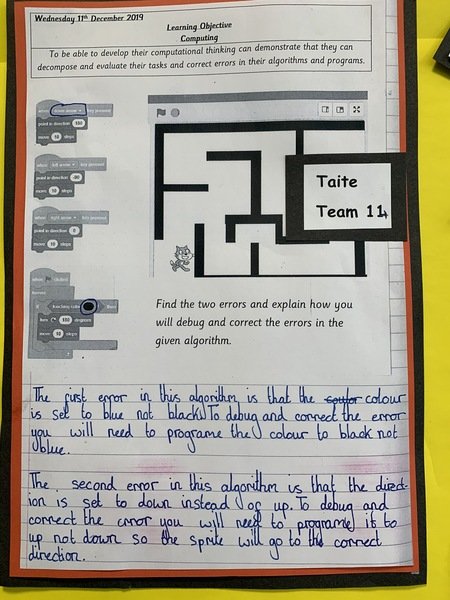 Wednesday 11th December 2019
Learning Objective
Computing
To be able to develop their computational thinking can demonstrate that they can
decompose and evaluate their tasks and correct errors in their algorithms and programs.
when down arrow key pressed
point in direction 180
move 10 steps
when left arrow key pressed
point in direction -90
move 10 steps
when right arrow key pressed
point in direction 0
move 10 steps
when clicked
if touching color then
turn 180 degrees
move 10 steps
Taite
Team 11
Find the two errors and explain how you
will debug and correct the errors in the
given algorithm.
The first error in this algorithm is that the colour
is set to blue not black. To debug and correct the error
you will need to programe the colour to black not
blue.
The second error in this algorithm is that the direct-
ion is set to down instead of up. To debug and
correct the error you will need to programe it to
up not down so the sprite will go to the correct
direction.